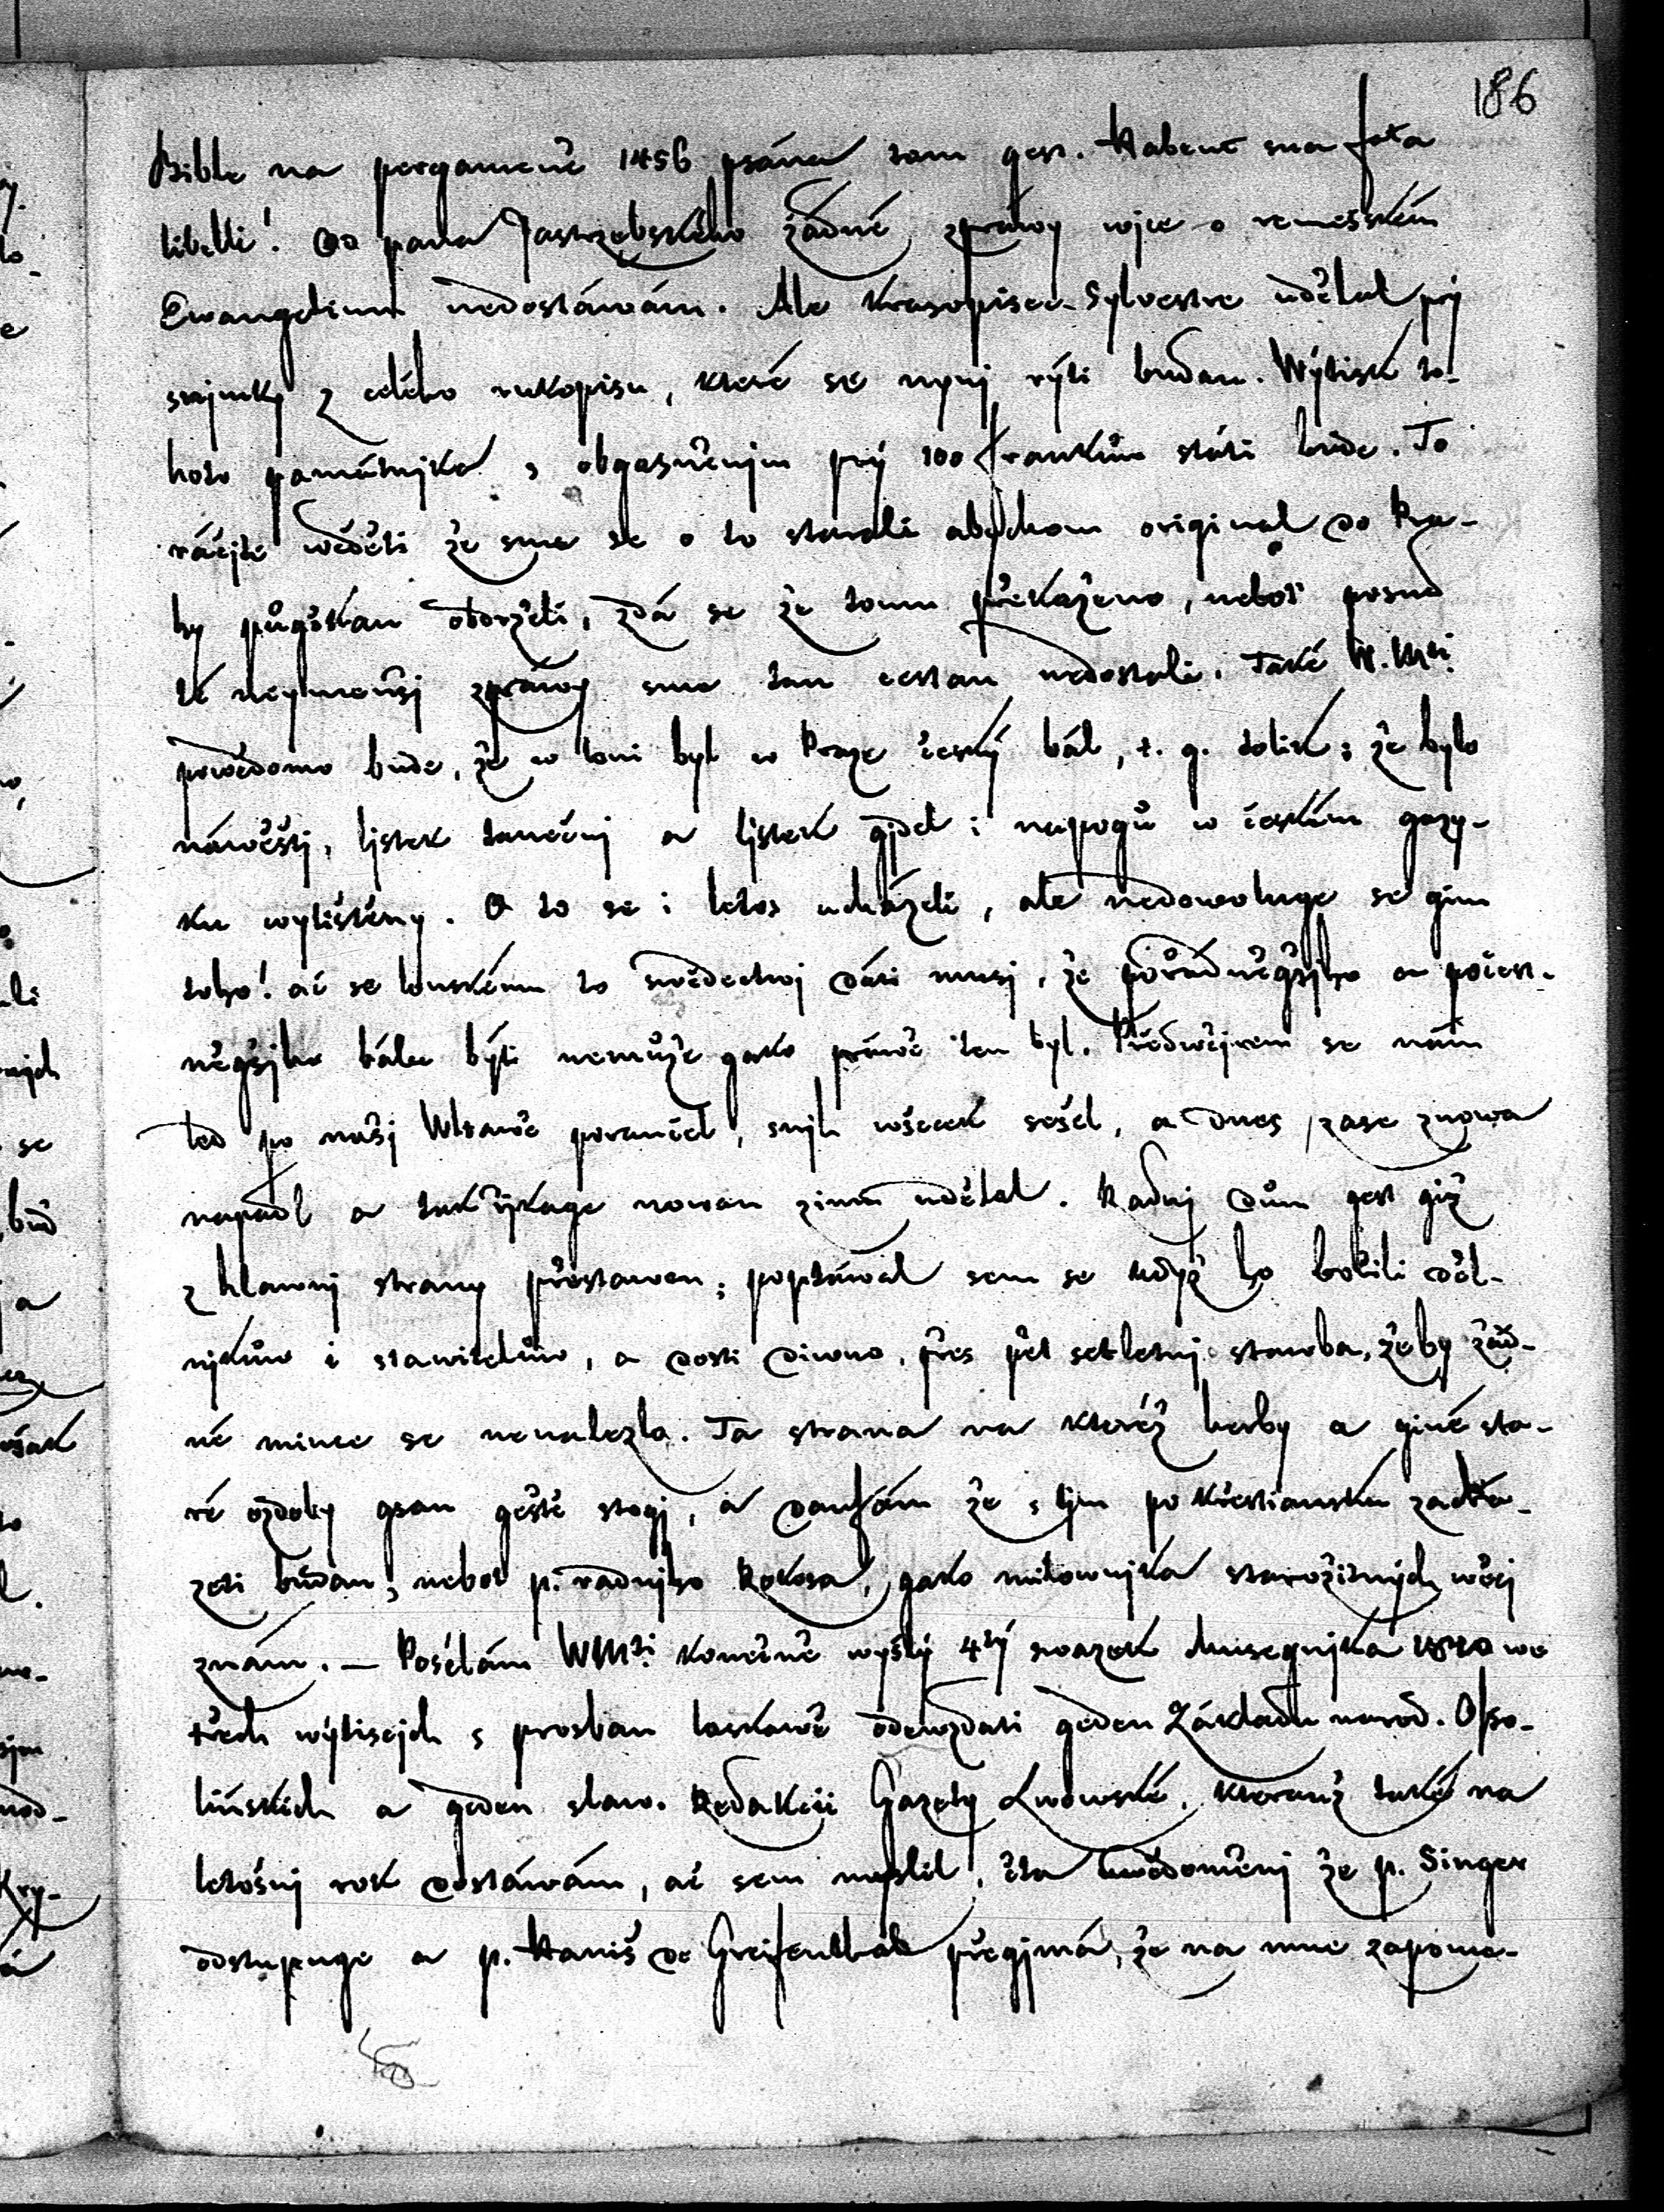 186
Bible na pergameně 1456 psána tam gest. Habent sua fata
libelli! Od pana Jastrzębského žádné zpráwy wjce o remešském
Ewangelium nedostáwám. Ale krasopisec Sylvestre udělal prý
snjmky z celého rukopisu, které se nynj rýti budau. Wýtisk to-
hoto památnjka s obgasněnjm prý 100 frankům státi bude. To
ráčjte wěděti že sme se o to starali abychom original do Pra-
hy půgčkau obdrželi, zdá se že tomu překaženo, neboť posud
té neymenšj zpráwy sme tau cestau nedostali. Také W. Mti
powědomo bude, že w loni byl w Praze český bál, t. g. tolik: že bylo
náwěštj, ljstek tanečnj a ljstek gjdel i napogů w českém gazy-
ku wytištěny. O to se i letos ucházeli, ale nedowoluge se gim
toho! ač se lonskému to swědectwj dáti musj, že pořádněgšjho a počest-
něgšjho bálu býti nemůže gako práwě ten byl. Předwčjrem se nám
led po našj Wltawě poraučel, snjh wšecek sešel, a dnes zase znowa
napadl a tak řjkage nowau zimu udělal. Radnj dům gest giž
z hlawnj strany přestawen; poptáwal sem se když ho bořili děl-
njkůw i stawitelůw, a dosti diwno, přes pět set letnj stawba, žeby žád-
né mince se nenalezlo. Ta strana na kteréž herby a giné sta-
ré ozdoby gsau geště stogj, a daufám že s tjm po křestiansku zachá-
zeti budau, neboť p. radnjho Rokosa, gako milownjka starožitných wěcj
znám. — Posélám WMti. konečně wyšlý 4tý swazek Musegnjka 1840 we
třech wýtiscjch s prosbau laskawě odewzdati geden Základu narod. Osso-
lińskich a geden slaw. Redakcii Gazety Lwowské, kterauž také na
letošnj rok dostáwám, ač sem myslil, čta uwědoměnj že p. Singer
odstupuge a p. Haniš de Greifenthal přegjmá, že na mne zapome-